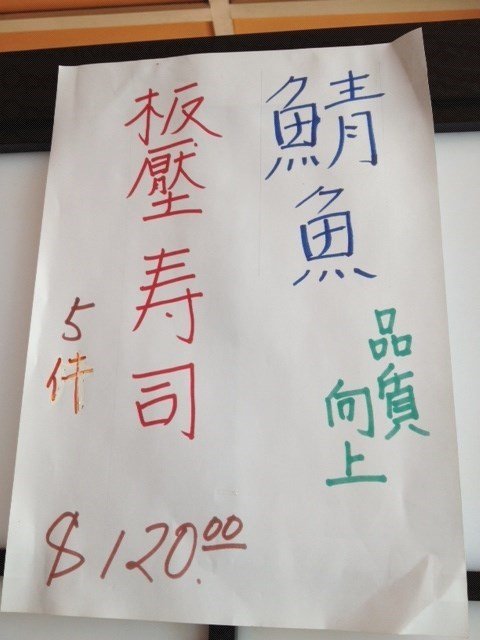 鯖魚
品質
向上
板壓寿司
5件
$120.00